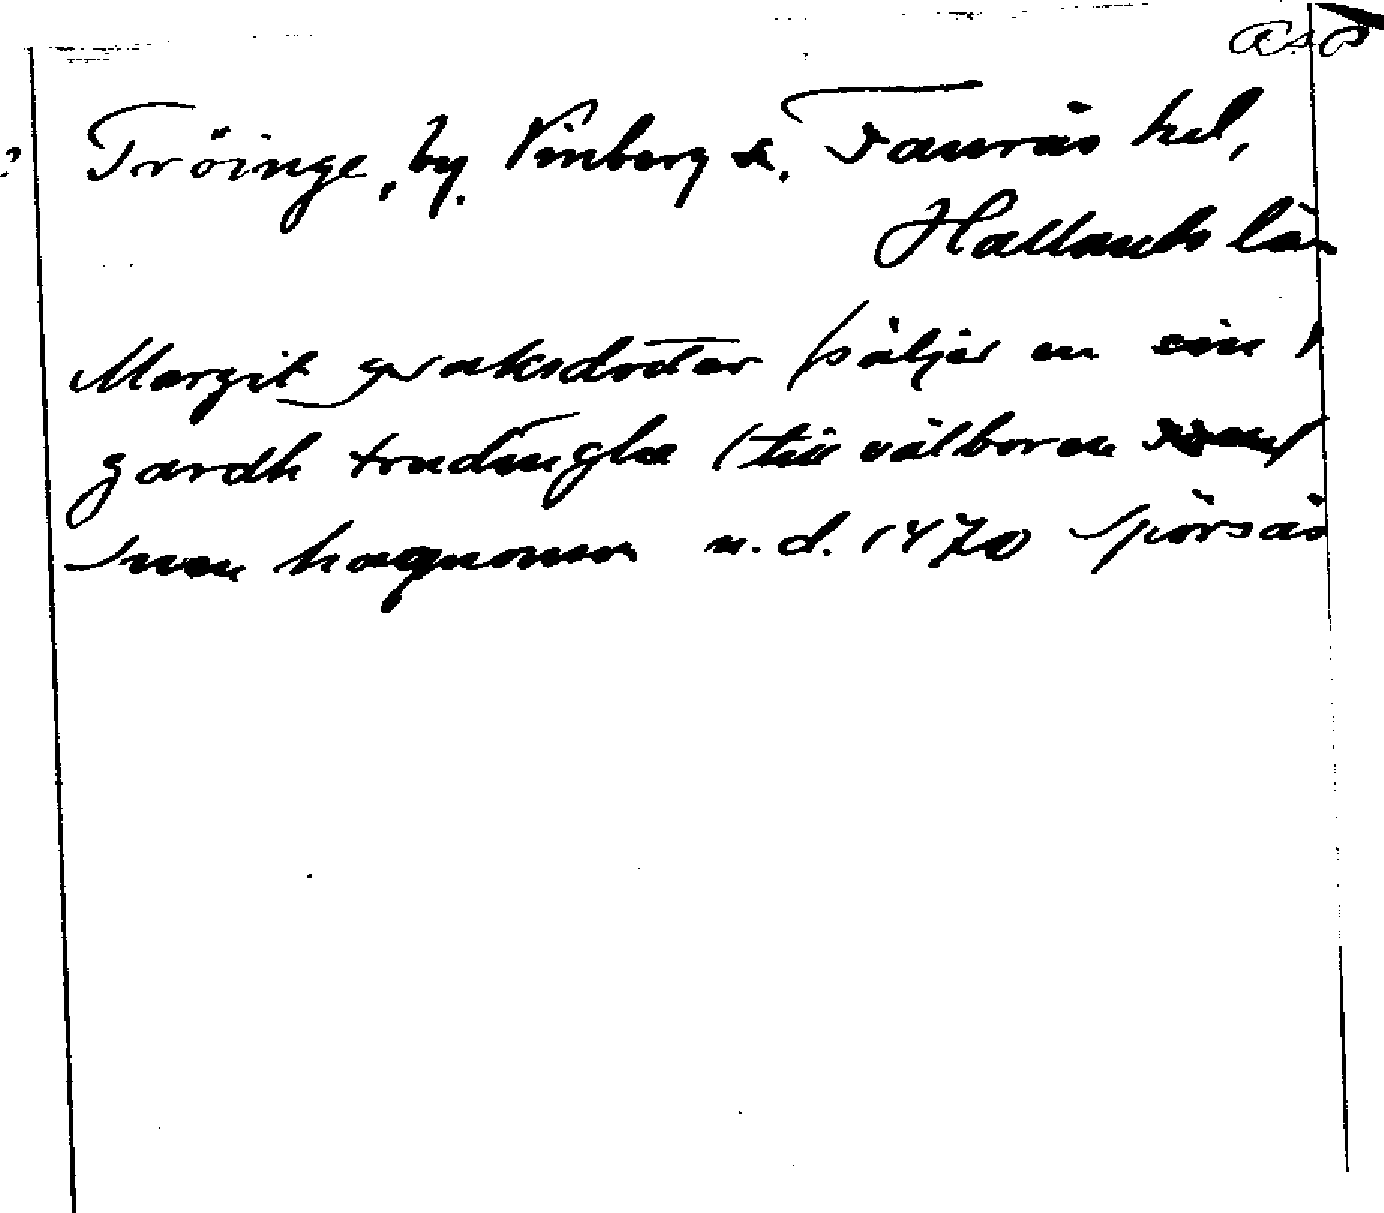 Tröinge, by. Vinberg sn. Faurås hd,
Hallands län
Margit ovaksdotter (säljer en sin)
gardh trudingha (till välboren
Swen hagnonson u.d. 1470 Sporsäs